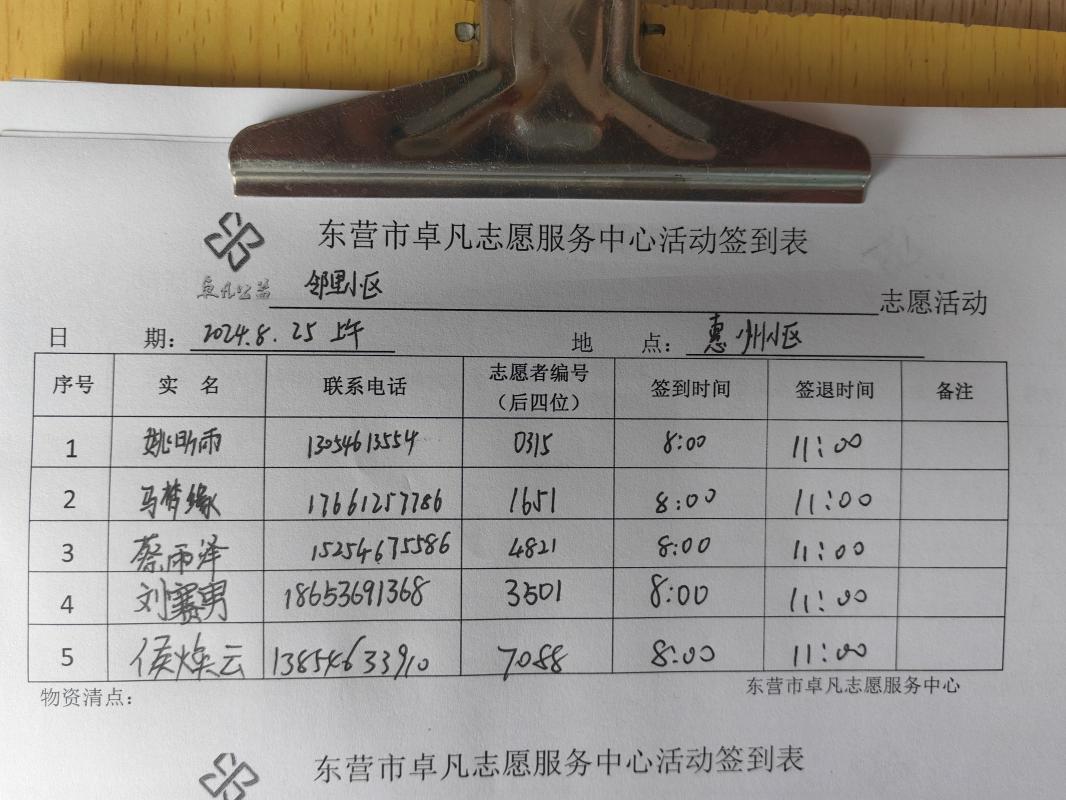 东营市卓凡志愿服务中心活动签到表
卓凡公益 邻里小区 志愿活动
日 期：2024.8.25 上午 地 点：惠州小区
序号 实 名 联系电话 志愿者编号（后四位） 签到时间 签退时间 备注
1 姚昕雨 13054613554 0315 8:00 11:00
2 马梦缘 17661257786 1651 8:00 11:00
3 蔡雨泽 15254675586 4821 8:00 11:00
4 刘襄勇 18653691368 3501 8:00 11:00
5 侯焕云 13854633910 7088 8:00 11:00
物资清点： 东营市卓凡志愿服务中心
东营市卓凡志愿服务中心活动签到表